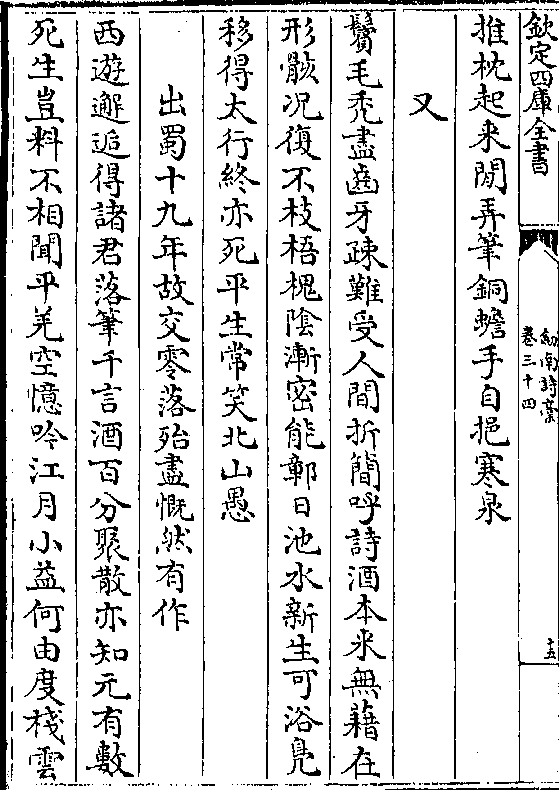 欽定四庫全書
劍南詩藁
卷三十四
十五
推枕起来閒弄筆銅蟾手自挹寒泉
又
鬢毛秃盡齒牙疎難受人間折簡呼詩酒本來無藉在
形骸况復不枝梧槐隂漸密能鄣日池水新生可浴鳧
移得太行終亦死平生常笑北山愚
出蜀十九年故交零落殆盡慨然有作
西遊邂逅得諸君落筆千言酒百分聚散亦知元有數
死生豈料不相聞平羌空憶吟江月小益何由度棧雲